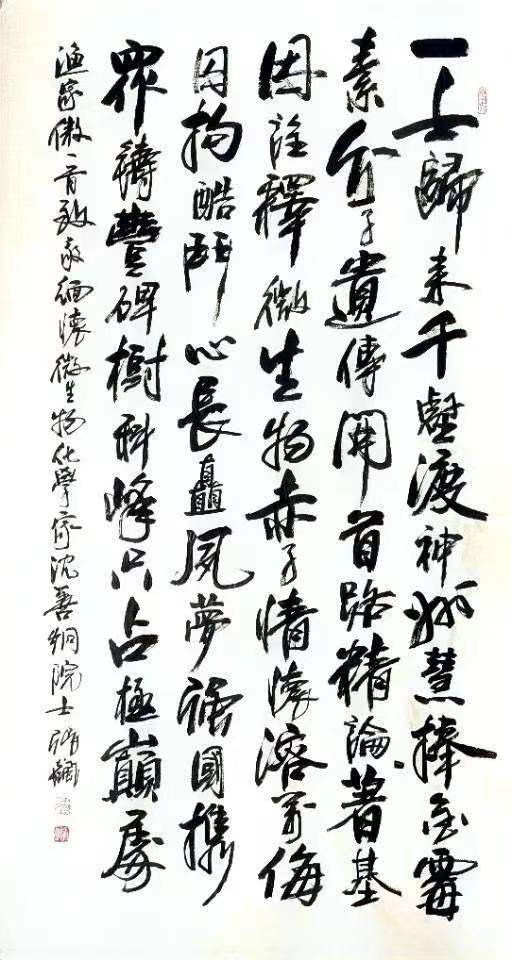 一士歸来千壑渡神州慧捧金霉
素介子遺傳開首路精論著基
因註釋微生物赤子情懷溶萬侮
囚拘酷鬥心長矗夙夢強國携
眾鑄豐碑樹科峰只占極巔處
渔家傲一首致敬緬懷微生物化學家沈善炯院士